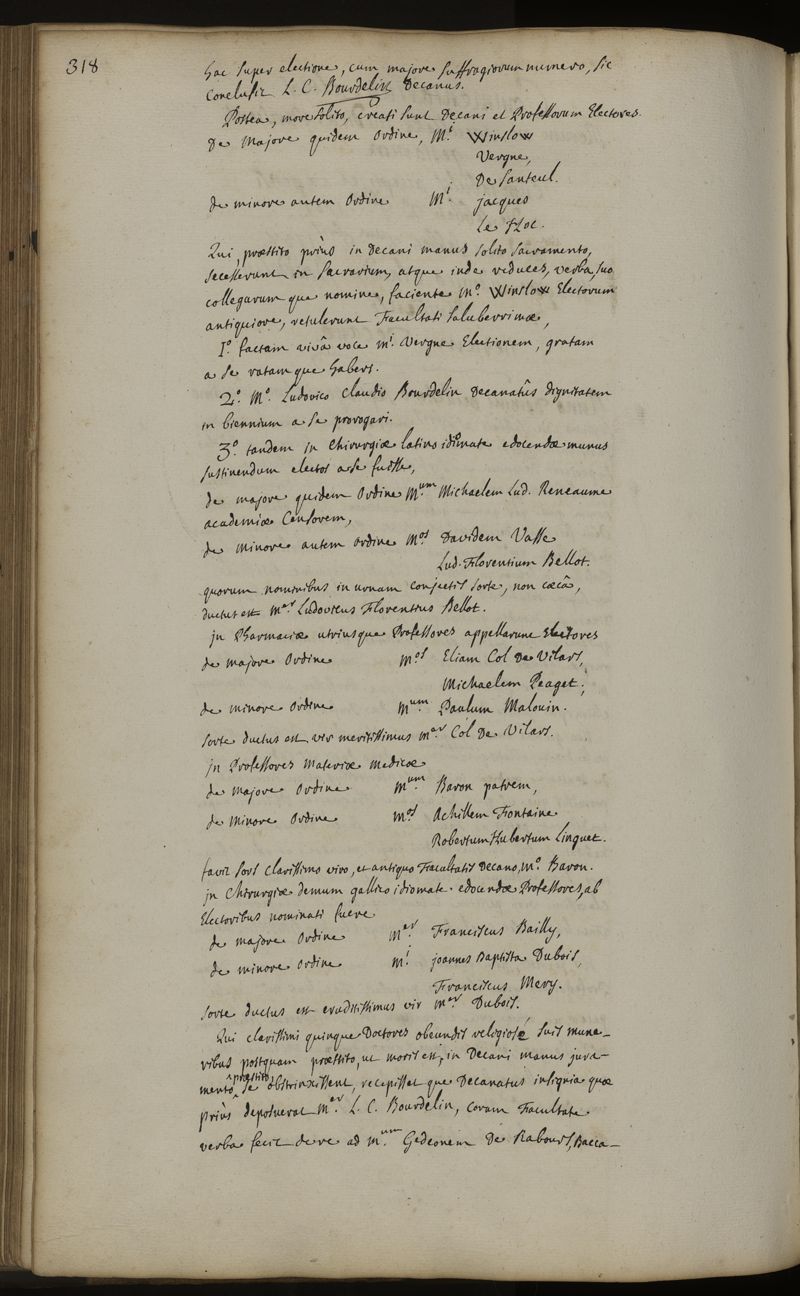 318
hac super electione, cum majore suffragiorum numero, sic
Conclusit L. C. Bourdelin Decanus.
Postea, more solito, creati sunt Decani et Professorum Electores.
De Majore quidem Ordine, M.i Winslow
Vergne,
De Santeul.
de minore autem Ordine M.i jacques
Le Hoc.
Qui, præstito priùs in Decani manus solito Sacramento,
secesserunt in Sacrarium, atque inde reduces, verba, suo
collegarumque nomine, faciente M.o Winslow Electorum
antiquiore, retulerunt Facultati Saluberrimæ,
1.o factam vivâ voce M.i Vergne Electionem, gratam
a se ratamque haberi.
2.o M.o Ludovico Claudio Bourdelin Decanatûs dignitatem
in biennium a se prorogari.
3.o tandem in Chirurgiæ latino idiomate edocendæ munus
sustinendum electos a se fuisse,
de majore quidem Ordine M.um Michaelem Lud. Reneaume
academiæ Censorem,
de minore autem ordine M.os Davidem Vasse
Lud. Florentium Bellot.
quorum nominibus in urnam conjectis sorte, non cæcâ,
ductus est M.er Ludovicus Florentius Bellot.
jn Pharmaciæ utriusque Professores appellarunt Electores
de majore Ordine M.os Eliam Col de Vilars,
Michaelem Peaget;
de minore Ordine M.um Paulum Malouin.
sorte ductus est vir meritissimus M.er Col De Vilars.
jn Professores Materiæ Medicæ
de majore Ordine M.um Baron patrem,
de minore Ordine M.os Achillem Fontaine
Robertum Hubertum Linguet.
favit sors clarissimo viro, et antiquo Facultatis Decano, M.o Baron.
jn Chirurgiæ demum gallico idiomate edocendæ Professores, ab
Electoribus nominati fuere
de majore Ordine M.er Franciscus Bailly,
de minore Ordine M.i joannes Baptista Dubois,
Franciscus Mery.
sorte ductus est eruditissimus vir M.er Dubois.
Qui clarissimi quinque Doctores obeundis religiosè suis mune-
ribus postquam præstito, ut moris est, in Decani manus jura-
mento præstito se obstrinxissent, recepisset que Decanatus insignia quæ
priùs deposuerat M.er L. C. Bourdelin, coram Facultate
verba fecit de re ad M.um Gedeonem De Rabours, Bacca-